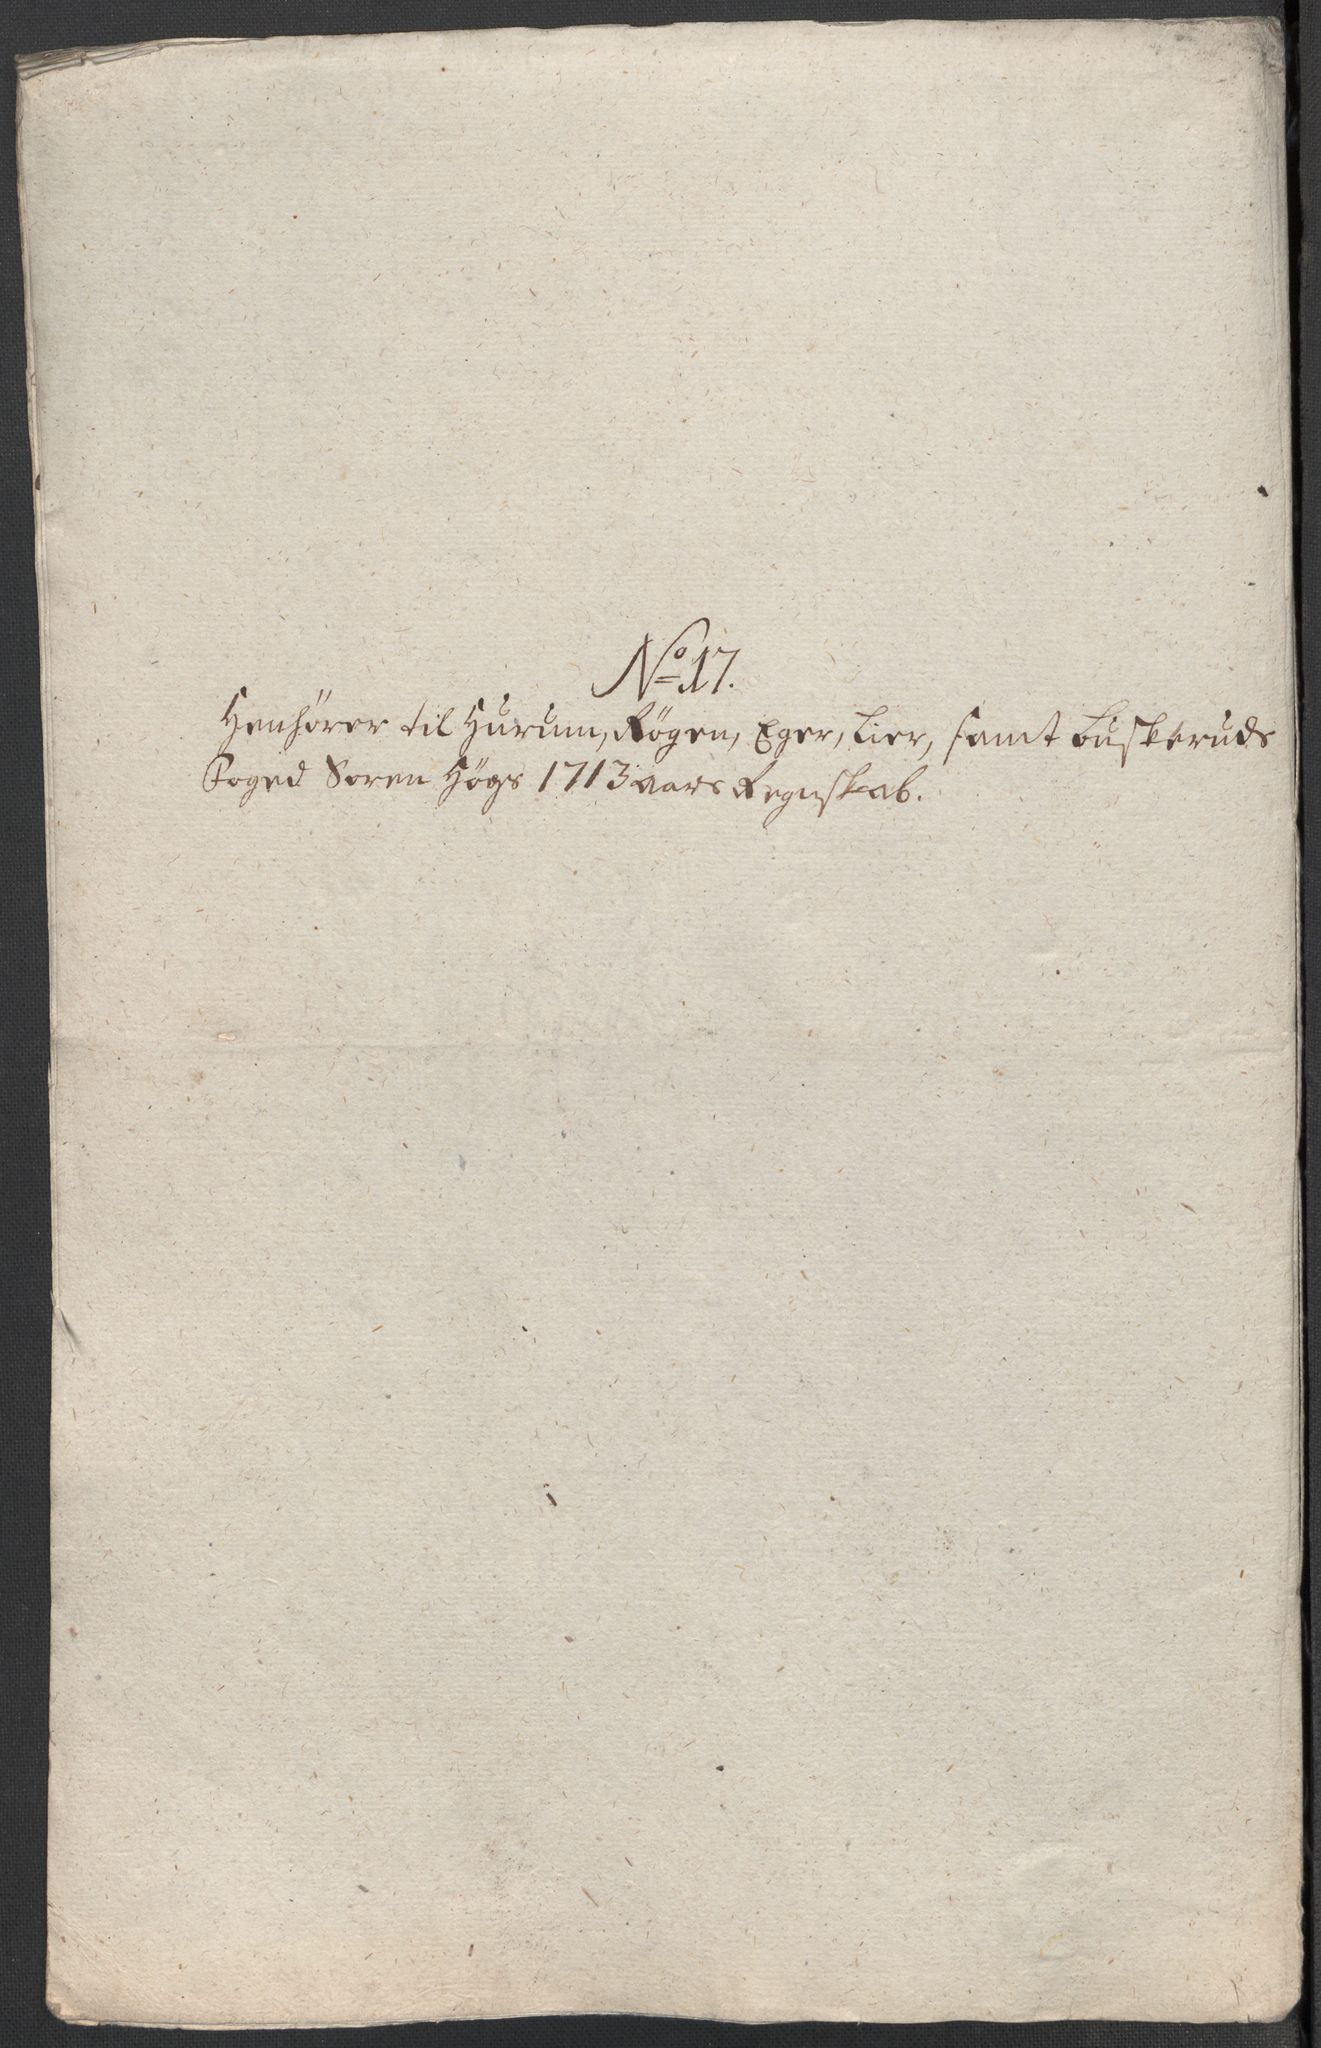 No 17.
Henhörer til Hurum, Rögen, Eger, Lier, samt Buskeruds
Foged Soren Högs 1713 aars Regnskab.